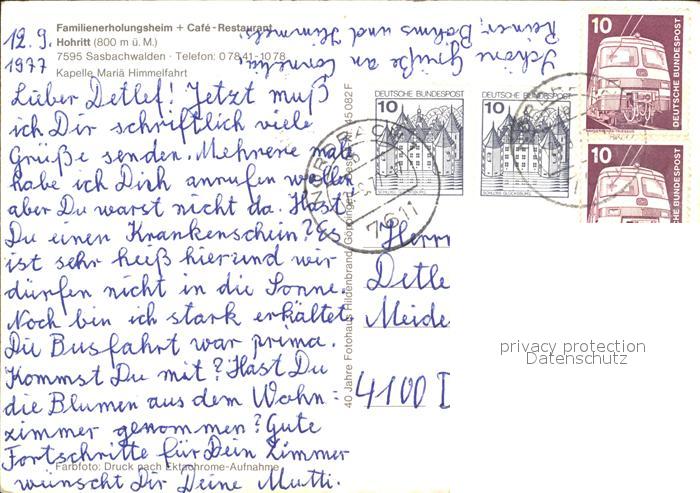 Familienerholungsheim + Café-Restaurant
Hohritt (800 m ü. M.)
7595 Sasbachwalden · Telefon: 07841-1078
Kapelle Mariä Himmelfahrt
12.9.
1977
Lieber Detlef! Jetzt muß
ich Dir schriftlich viele
Grüße senden. Mehrere male
habe ich Dich anrufen wollen
aber Du warst nicht da. Hast
Du einen Krankenschein? Es
ist sehr heiß hier und wir
dürfen nicht in die Sonne.
Noch bin ich stark erkältet.
Die Busfahrt war prima.
Kommst Du mit? Hast Du
die Blumen aus dem Wohn=
zimmer genommen? Gute
Fortschritte für Dein Zimmer
wünscht Dir Deine Mutti.
Schöne Grüße an Cornelia,
Reiner, Böhms und Himmels.
Farbfoto: Druck nach Ektachrome-Aufnahme
40 Jahre Fotohaus Hildenbrand, Göppingen
45 082 F
DEUTSCHE BUNDESPOST
10
SCHLOSS GLÜCKSBURG
DEUTSCHE BUNDESPOST
10
SCHLOSS GLÜCKSBURG
10
DEUTSCHE BUNDESPOST
10
DEUTSCHE BUNDESPOST
7611
Herrn
Detle
Meide
4100 D
privacy protection
Datenschutz